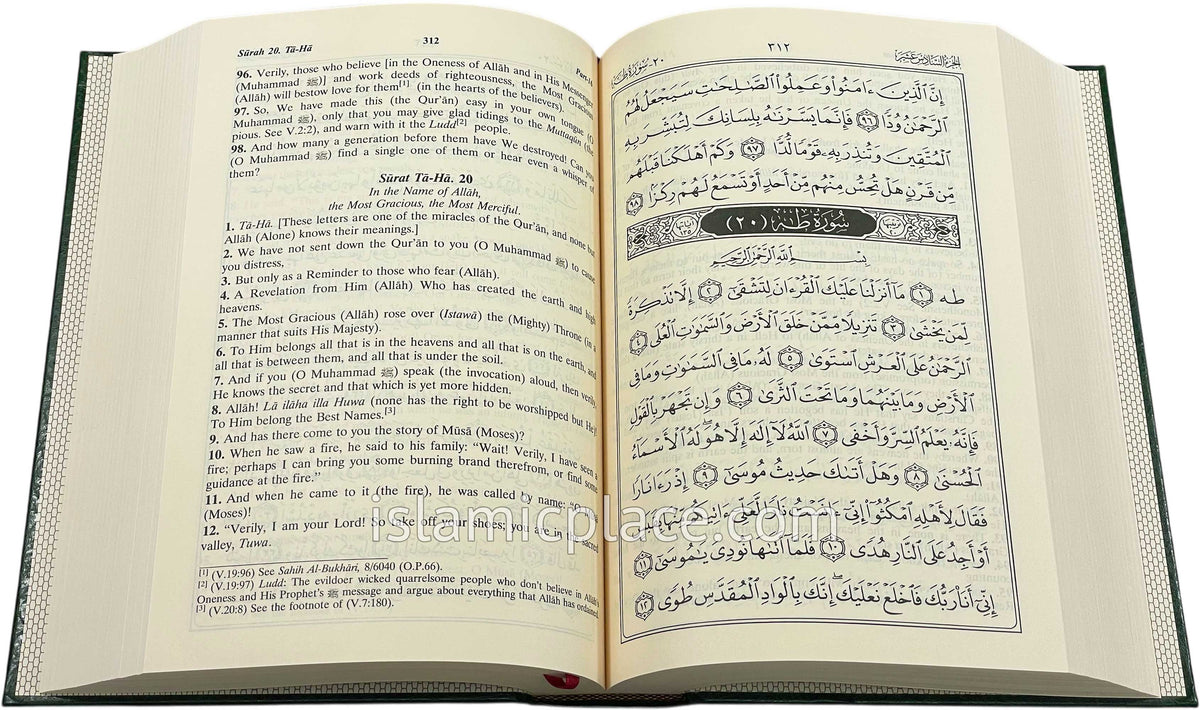 Sūrah 20. Tā-Hā
312
96. Verily, those who believe [in the Oneness of Allāh and in His Messenger
(Muhammad ﷺ)] and work deeds of righteousness, the Most Gracious
(Allāh) will bestow love for them[1] (in the hearts of the believers).
97. So, We have made this (the Qur'ān) easy in your own tongue (O
Muhammad ﷺ), only that you may give glad tidings to the Muttaqūn (the
pious. See V.2:2), and warn with it the Ludd[2] people.
98. And how many a generation before them have We destroyed! Can you
(O Muhammad ﷺ) find a single one of them or hear even a whisper of
them?
Sūrat Tā-Hā. 20
In the Name of Allāh,
the Most Gracious, the Most Merciful.
1. Tā-Hā. [These letters are one of the miracles of the Qur'ān, and none but
Allāh (Alone) knows their meanings.]
2. We have not sent down the Qur'ān to you (O Muhammad ﷺ) to cause
you distress,
3. But only as a Reminder to those who fear (Allāh).
4. A Revelation from Him (Allāh) Who has created the earth and high
heavens.
5. The Most Gracious (Allāh) rose over (Istawā) the (Mighty) Throne (in a
manner that suits His Majesty).
6. To Him belongs all that is in the heavens and all that is on the earth, and
all that is between them, and all that is under the soil.
7. And if you (O Muhammad ﷺ) speak (the invocation) aloud, then verily,
He knows the secret and that which is yet more hidden.
8. Allāh! Lā ilāha illa Huwa (none has the right to be worshipped but He)!
To Him belong the Best Names.[3]
9. And has there come to you the story of Mūsā (Moses)?
10. When he saw a fire, he said to his family: "Wait! Verily, I have seen a
fire; perhaps I can bring you some burning brand therefrom, or find some
guidance at the fire."
11. And when he came to it (the fire), he was called by name:
(Moses)!
12. "Verily, I am your Lord! So take off your shoes; you are in sacred
valley, Tuwa.
[1] (V.19:96) See Sahih Al-Bukhāri, 8/6040 (O.P.66).
[2] (V.19:97) Ludd: The evildoer wicked quarrelsome people who don't believe in Allāh's
Oneness and His Prophet's ﷺ message and argue about everything that Allāh has ordained.
[3] (V.20:8) See the footnote of (V.7:180).
٢٠ - سورة طه
٣١٢
الجزء السادس عشر
إِنَّ ٱلَّذِينَ ءَامَنُوا۟ وَعَمِلُوا۟ ٱلصَّـٰلِحَـٰتِ سَيَجْعَلُ لَهُمُ
ٱلرَّحْمَـٰنُ وُدًّا ٩٦ فَإِنَّمَا يَسَّرْنَـٰهُ بِلِسَانِكَ لِتُبَشِّرَ بِهِ
ٱلْمُتَّقِينَ وَتُنذِرَ بِهِۦ قَوْمًا لُّدًّا ٩٧ وَكَمْ أَهْلَكْنَا قَبْلَهُم
مِّن قَرْنٍ هَلْ تُحِسُّ مِنْهُم مِّنْ أَحَدٍ أَوْ تَسْمَعُ لَهُمْ رِكْزًۢا ٩٨
سُورَةُ طه (٢٠)
بِسْمِ ٱللَّهِ ٱلرَّحْمَـٰنِ ٱلرَّحِيمِ
طه ١ مَآ أَنزَلْنَا عَلَيْكَ ٱلْقُرْءَانَ لِتَشْقَىٰٓ ٢ إِلَّا تَذْكِرَةً
لِّمَن يَخْشَىٰ ٣ تَنزِيلًا مِّمَّنْ خَلَقَ ٱلْأَرْضَ وَٱلسَّمَـٰوَٰتِ ٱلْعُلَى ٤
ٱلرَّحْمَـٰنُ عَلَى ٱلْعَرْشِ ٱسْتَوَىٰ ٥ لَهُۥ مَا فِى ٱلسَّمَـٰوَٰتِ وَمَا فِى
ٱلْأَرْضِ وَمَا بَيْنَهُمَا وَمَا تَحْتَ ٱلثَّرَىٰ ٦ وَإِن تَجْهَرْ بِٱلْقَوْلِ
فَإِنَّهُۥ يَعْلَمُ ٱلسِّرَّ وَأَخْفَى ٧ ٱللَّهُ لَآ إِلَـٰهَ إِلَّا هُوَ ۖ لَهُ ٱلْأَسْمَآءُ
ٱلْحُسْنَىٰ ٨ وَهَلْ أَتَىٰكَ حَدِيثُ مُوسَىٰٓ ٩ إِذْ رَءَا نَارًا
فَقَالَ لِأَهْلِهِ ٱمْكُثُوٓا۟ إِنِّىٓ ءَانَسْتُ نَارًا لَّعَلِّىٓ ءَاتِيكُم مِّنْهَا بِقَبَسٍ
أَوْ أَجِدُ عَلَى ٱلنَّارِ هُدًى ١٠ فَلَمَّآ أَتَىٰهَا نُودِىَ يَـٰمُوسَىٰٓ ١١
إِنِّىٓ أَنَا۠ رَبُّكَ فَٱخْلَعْ نَعْلَيْكَ ۖ إِنَّكَ بِٱلْوَادِ ٱلْمُقَدَّسِ طُوًى ١٢
islamicplace.com